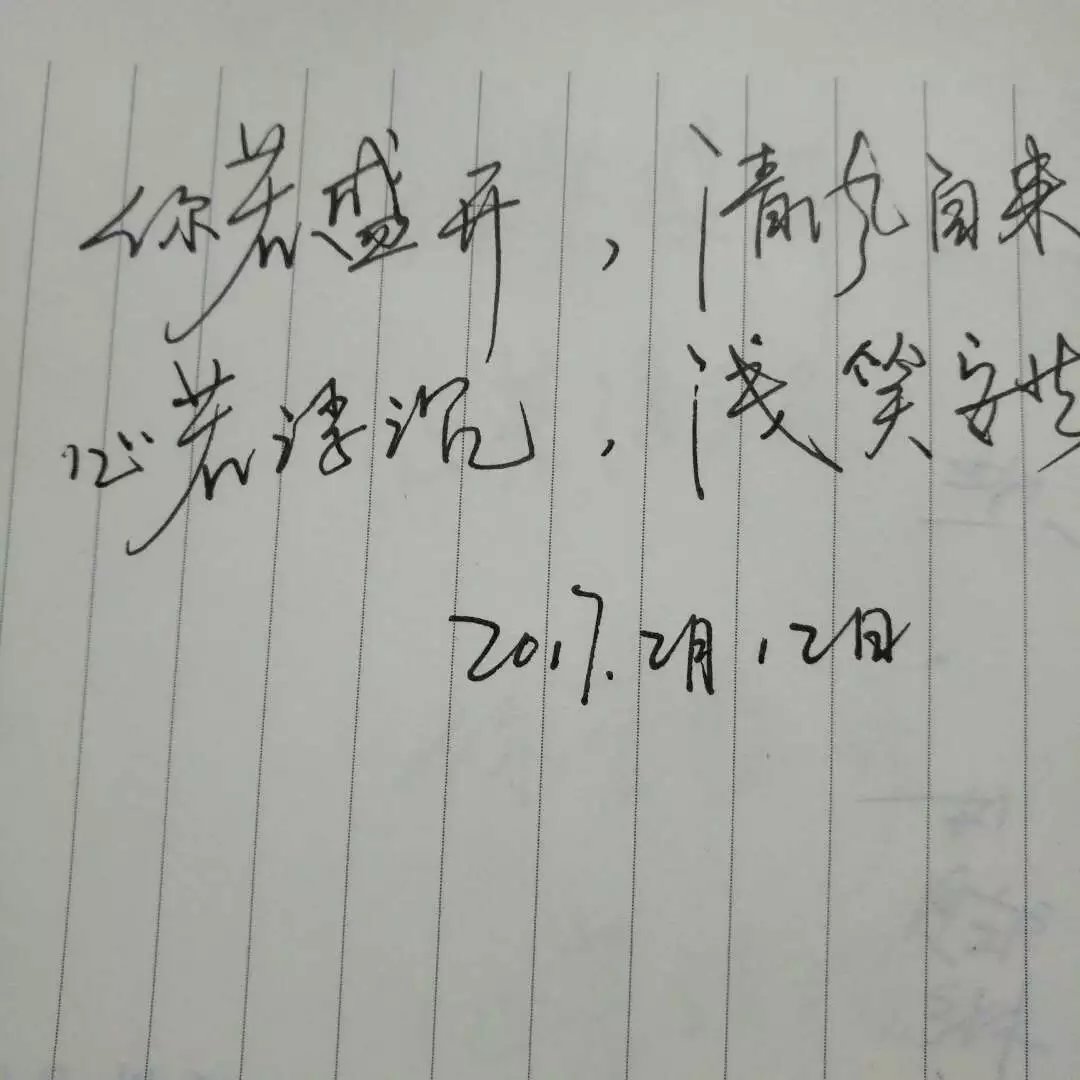 你若盛开，清风自来
心若浮沉，浅笑安然
2017.2月12日